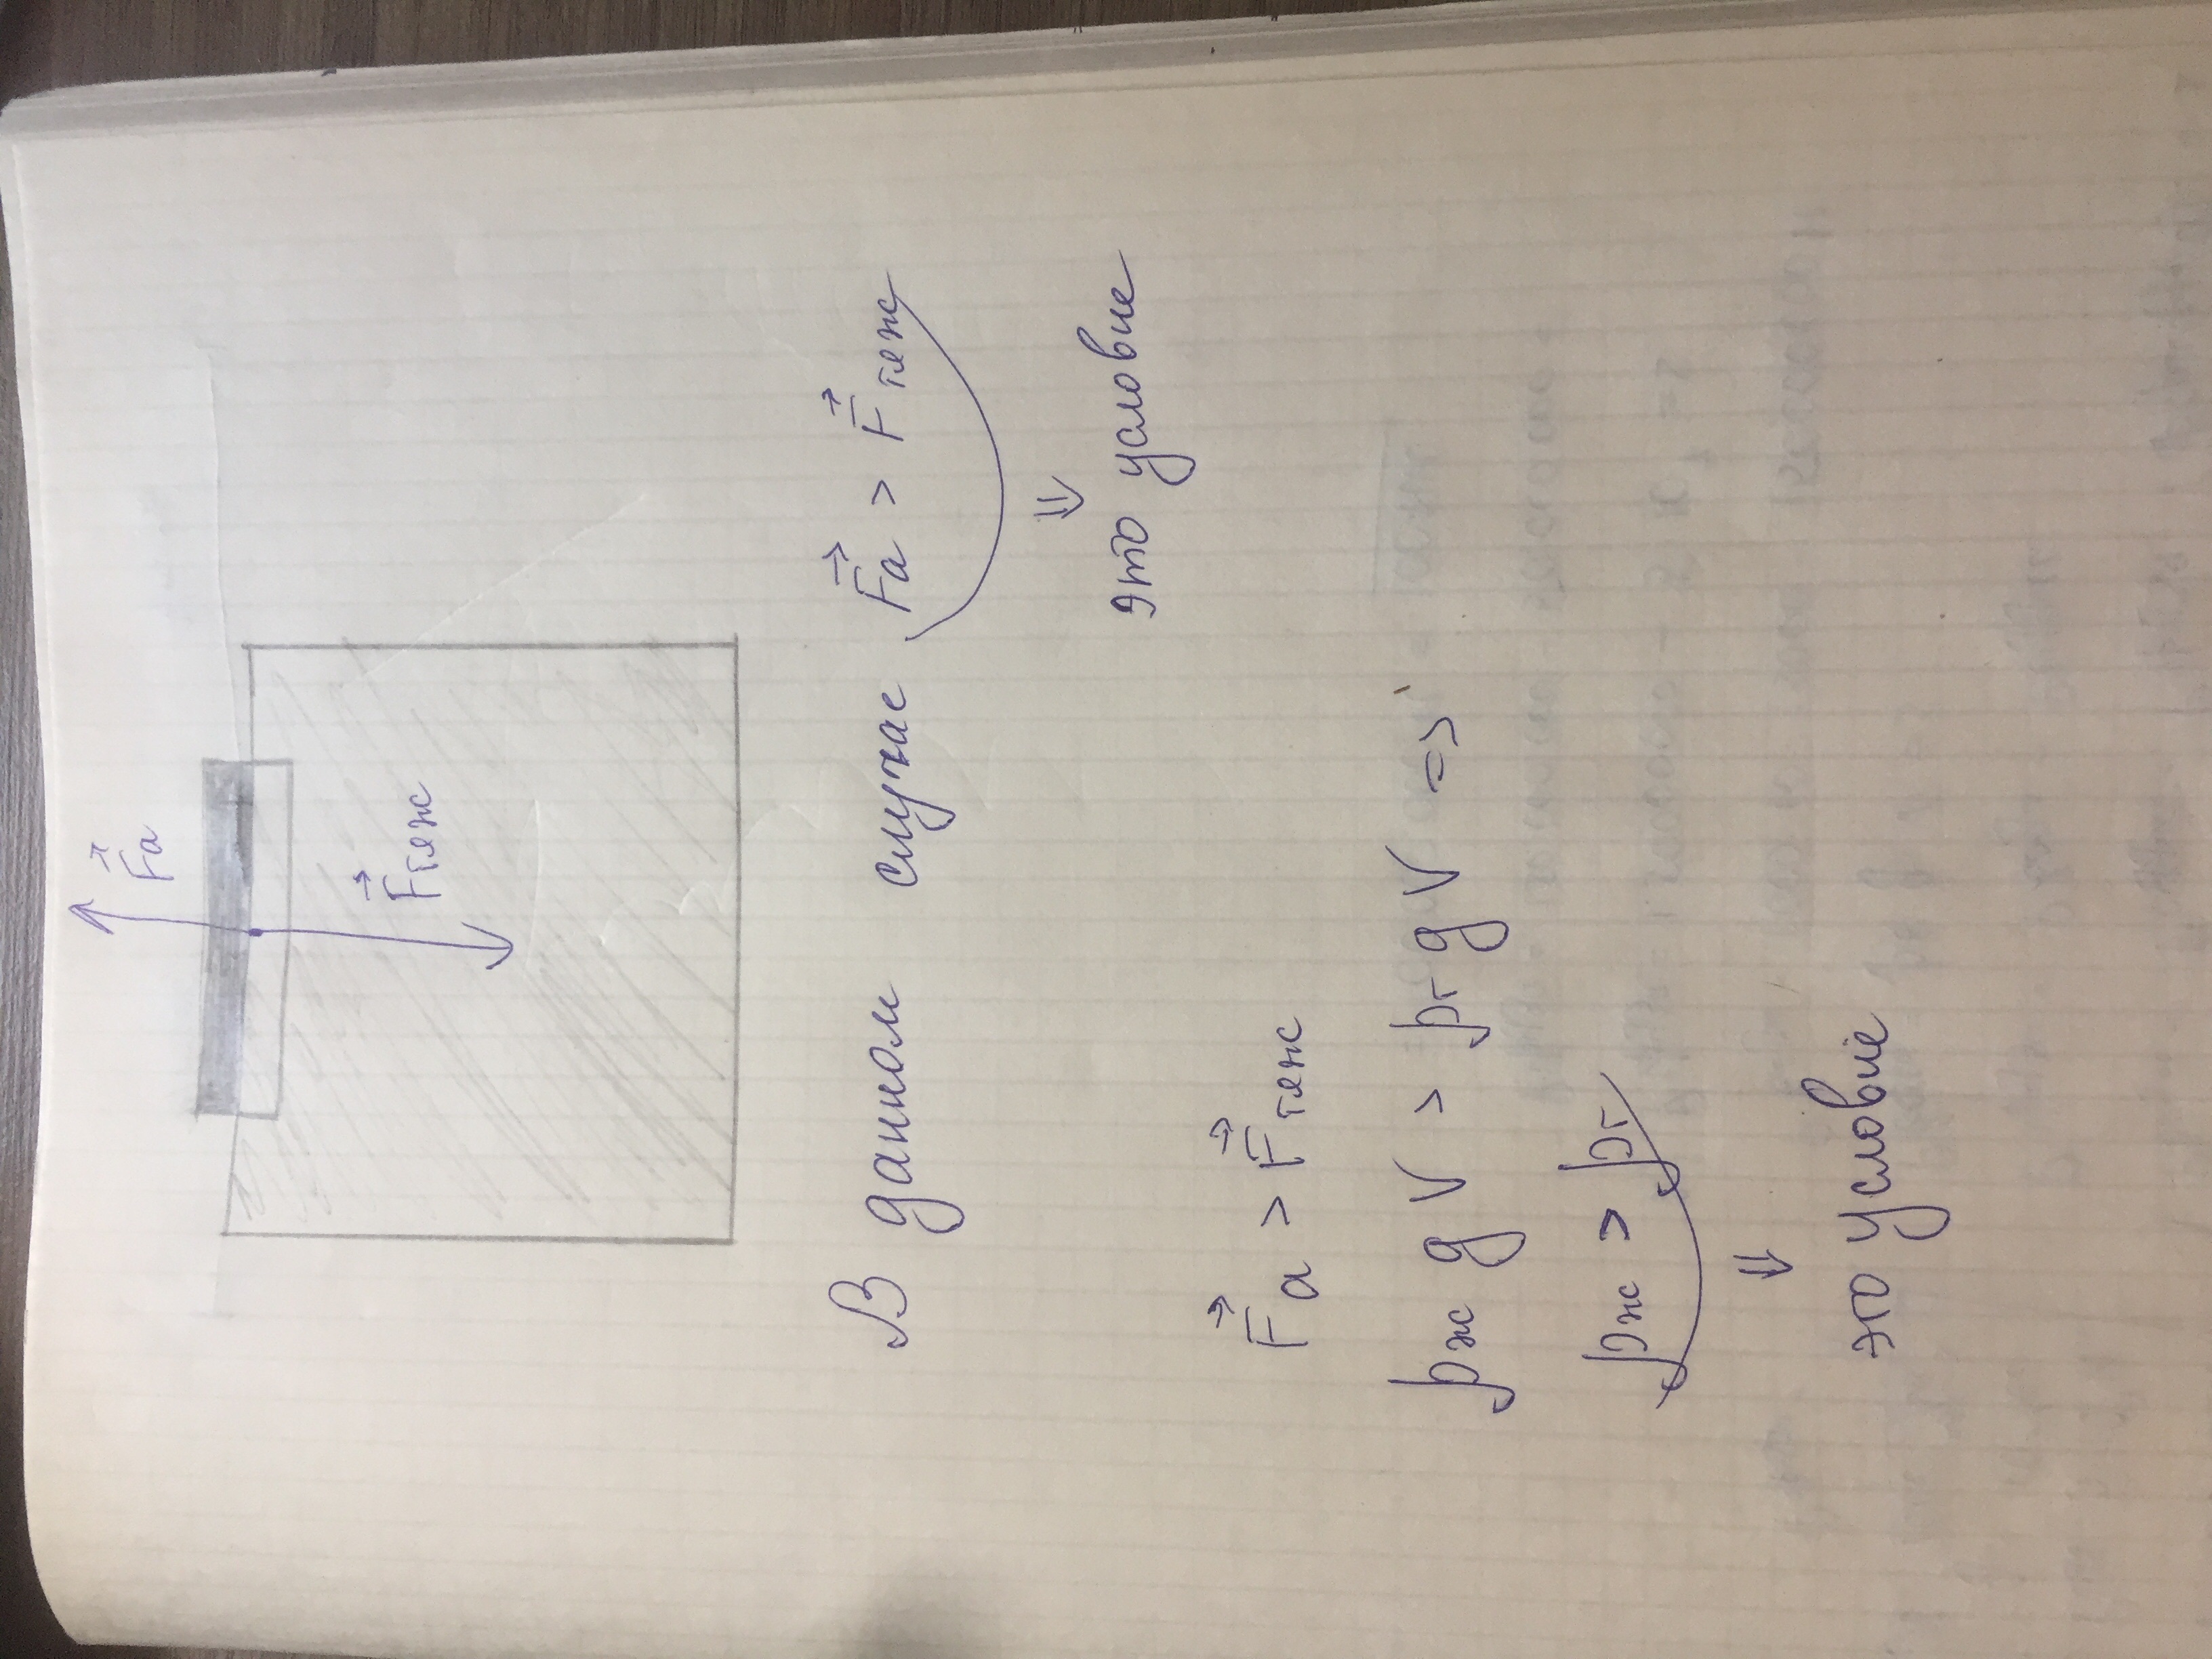 F⃗а
F⃗тяж
В данном случае F⃗а > F⃗тяж
⇓
это условие
F⃗а > F⃗тяж
ρж g V > ρт g V =>
ρж > ρт
⇓
это условие